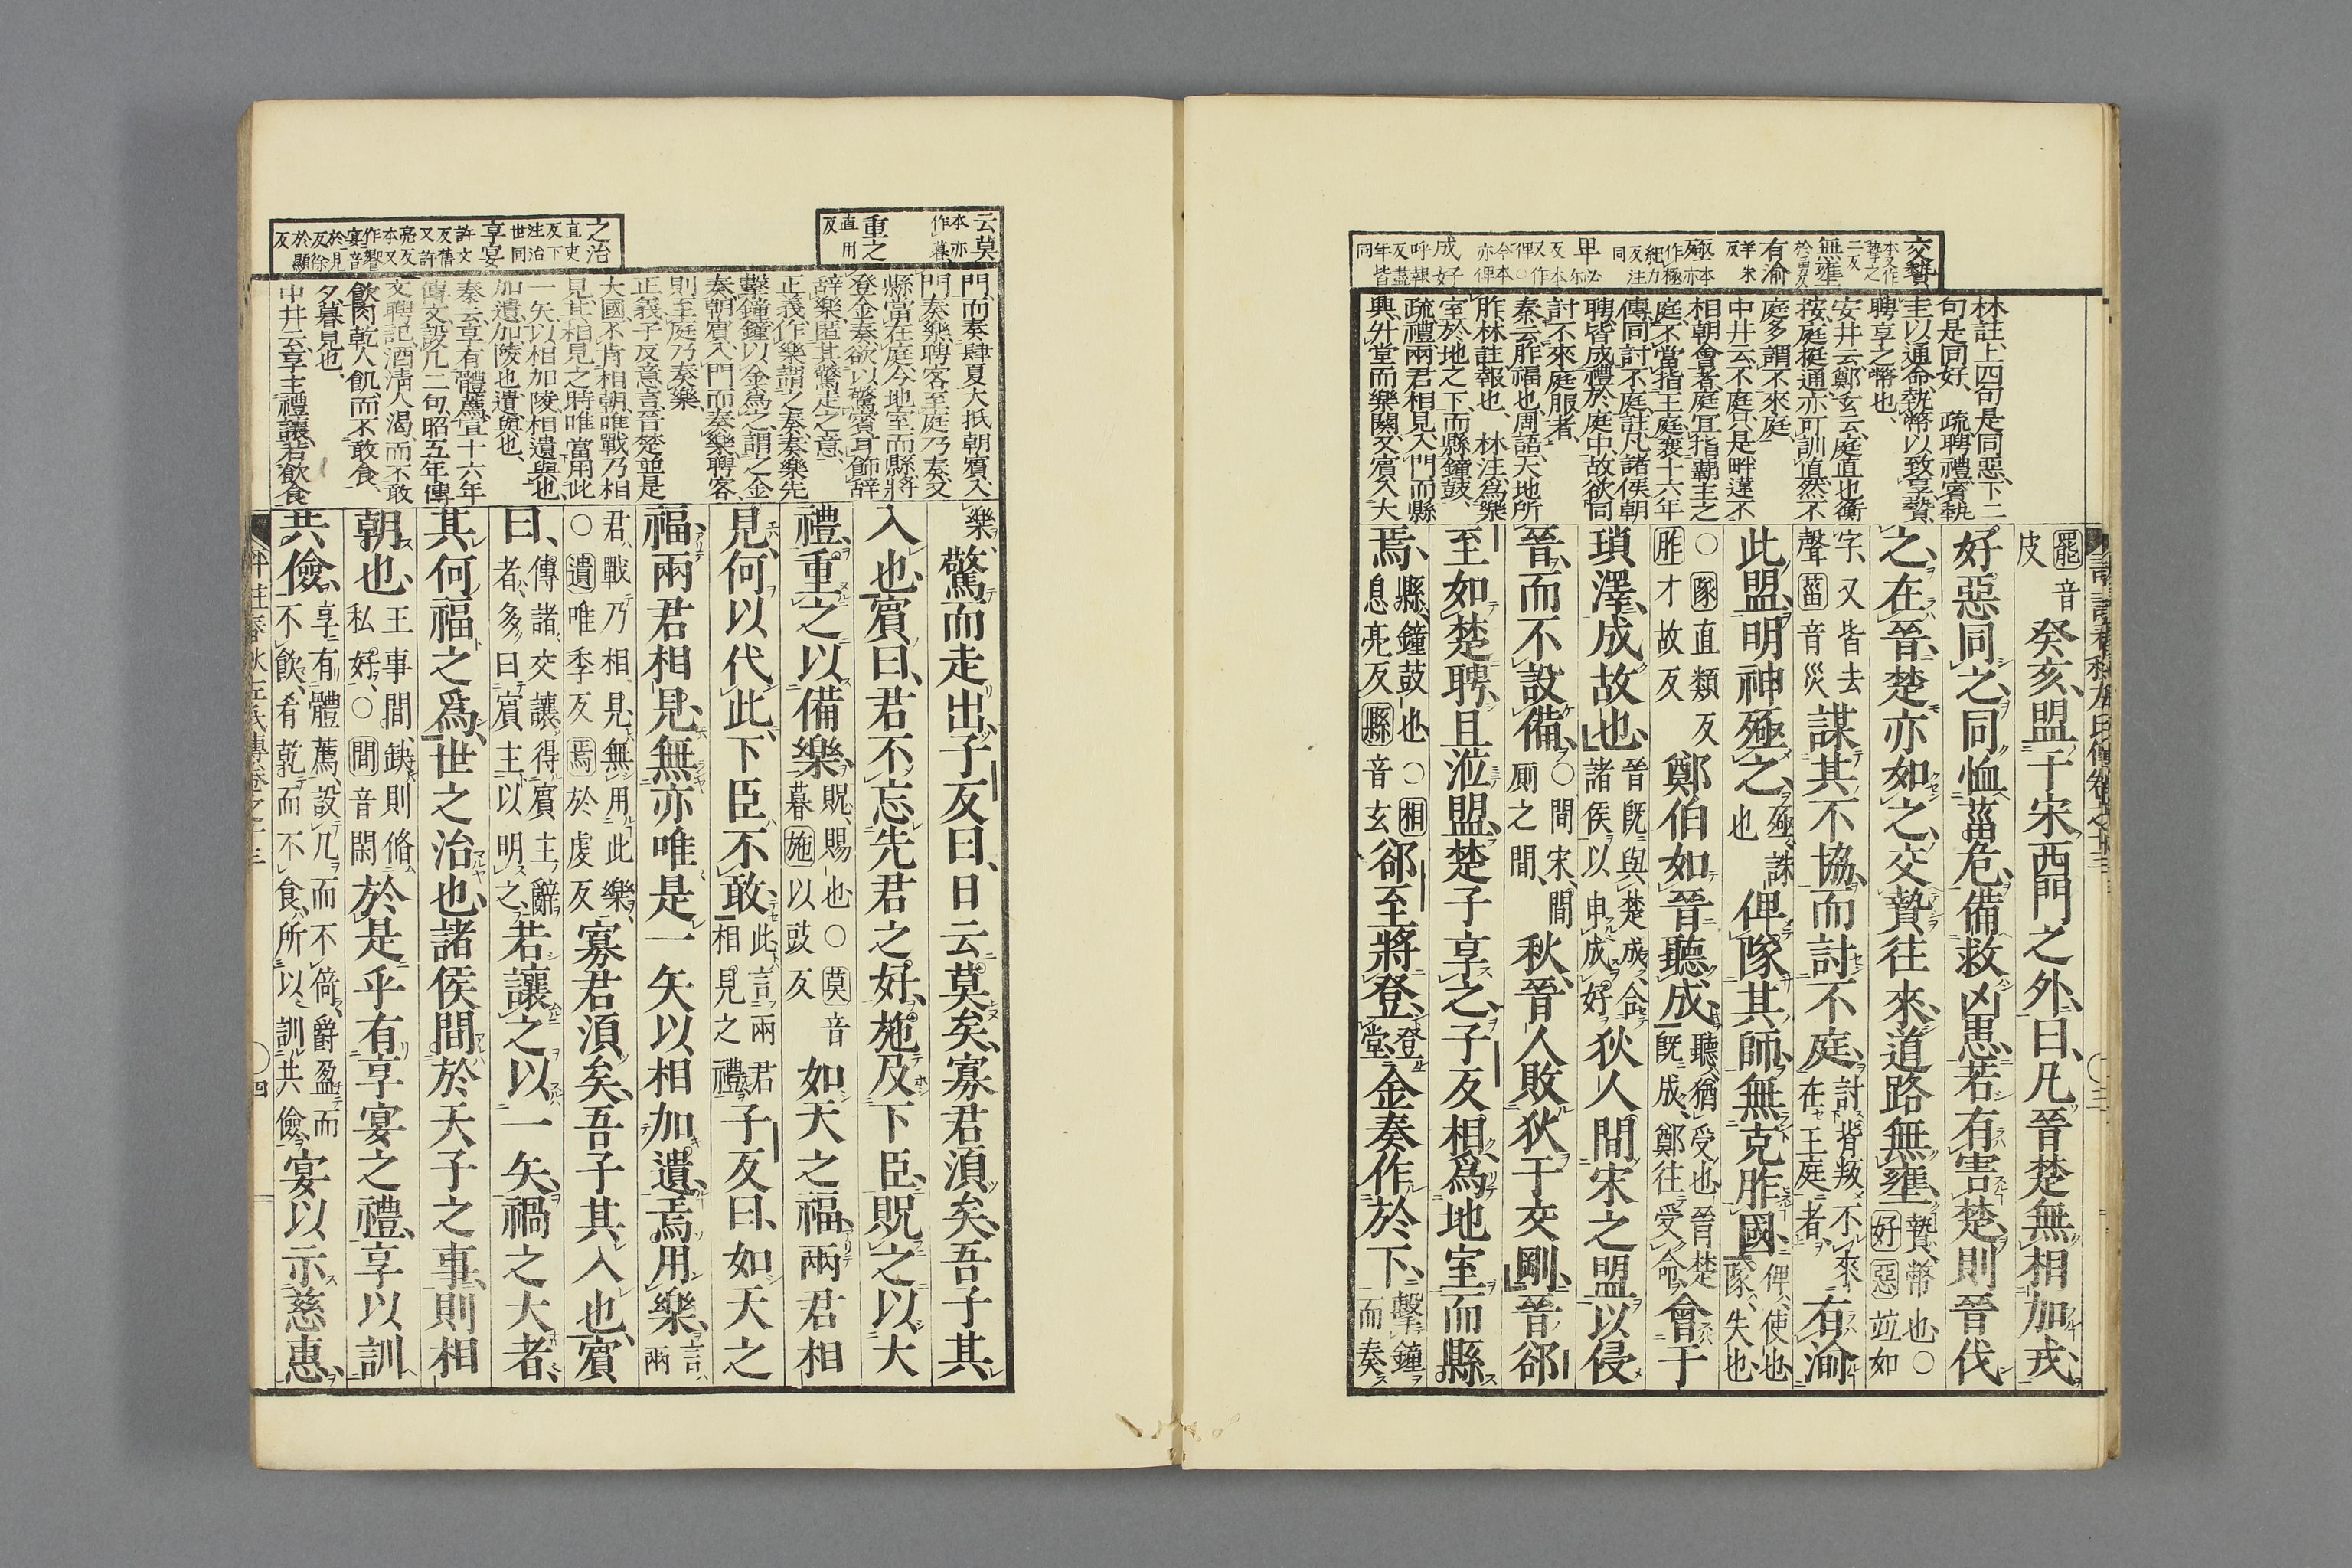 交贄
本又作
摯之
二反
無壅
於勇反
有渝
羊朱
反
殛
本亦
作極
紀力
反注
同
卑
必尓
反本
又作
俾○
今本
亦俾
成好
呼報
反盡
年皆
同
林註上四句是同惡下二
句是同好、疏聘禮賓執
圭以通命執幣以致享贄、
聘享之幣也
安井云鄭玄云庭直也衡
按庭挺通亦可訓直然不
庭多謂不來庭
中井云不庭只是畔違不
相朝會者庭宜指覇主之
庭不當指王庭襄十六年
傳同討不庭註凡諸侯朝
聘皆成禮於庭中故欲同
討不來庭服者
秦云胙福也周語天地所
胙林註報也　林注爲樂
室於地之下而縣鐘鼓、
疏禮兩君相見入門而縣
興升堂而樂闋又賓入大
罷音
皮
癸亥、盟于宋西門之外、曰、凡晉楚無相加戎、
好惡同之、同恤菑危、備救凶患、若有害楚、則晉伐
之、在晉、楚亦如之、交贄往來、道路無壅、贄、幣也○
好惡竝如
字又皆去
聲菑音災
謀其不協、而討不庭、討背叛不來
在王庭者
有渝
此盟、明神殛之、殛、誅
也
俾隊其師、無克胙國、俾、使也
隊、失也
○隊直類反
胙才故反
鄭伯如晉聽成、聽、猶受也、晉楚
既成、鄭往受命
會于
瑣澤、成故也、晉既與楚成、合
諸侯以申成好
狄人間宋之盟、以侵
晉、而不設備、○間宋、間
廁之間、
秋、晉人敗狄于交剛、晉郤
至如楚聘、且涖盟、楚子享之、子反相、爲地室而縣
焉、縣、鐘鼓也、○相
息亮反縣音玄
郤至將登、登
堂
金奏作於下、擊鐘
而奏
云莫
本亦
作暮
重之
直用
反
之治
直吏
反下
注治
世同
享宴
許文
反舊
又許
亮反
本又
作饗
宴音
於見
反徐
於顯
反
門而奏肆夏大抵朝賓入
門奏樂聘客至庭乃奏又
縣當在庭今地室而縣將
登金奏欲以驚賓耳飾辭
辭樂匿其驚走之意、
正義作樂謂之奏奏樂先
擊鐘鐘以金爲之謂之金
奏朝賓入門而奏樂聘客
則至庭乃奏樂
正義子反意言晉楚並是
大國不肯相朝唯戰乃相
見其相見之時唯當用此
一矢以相加陵相遺與也
加遺加陵也遺與也、
秦云享有體薦宣十六年
傳文設几二句昭五年傳
文聘記酒清人渴而不敢
飲肉乾人飢而不敢食、
夕暮見也、
中井云享主禮讓若飲食
樂、驚而走出、子反曰、日云莫矣、寡君須矣、吾子其
入也、賓曰、君不忘先君之好、施及下臣、貺之以大
禮、重之以備樂、貺、賜也○莫音
暮施以豉反
如天之福、兩君相
見、何以代此、下臣不敢、此言兩君
相見之禮
子反曰、如天之
福、兩君相見、無亦唯是一矢以相加遺、焉用樂、言兩
君戰乃相見、無用此樂、
○遺唯季反焉於虔反
寡君須矣、吾子其入也、賓
曰、傳諸交讓得賓主辭
者、多曰賓主以明之、
若讓之以一矢、禍之大者、
其何福之爲、世之治也、諸侯間於天子之事、則相
朝也、王事間缺則脩
私好、○間音閑
於是乎有享宴之禮、享以訓
共儉、享有體薦、設几而不倚、爵盈而
不飲、肴乾而不食、所以訓共儉
宴以示慈惠、